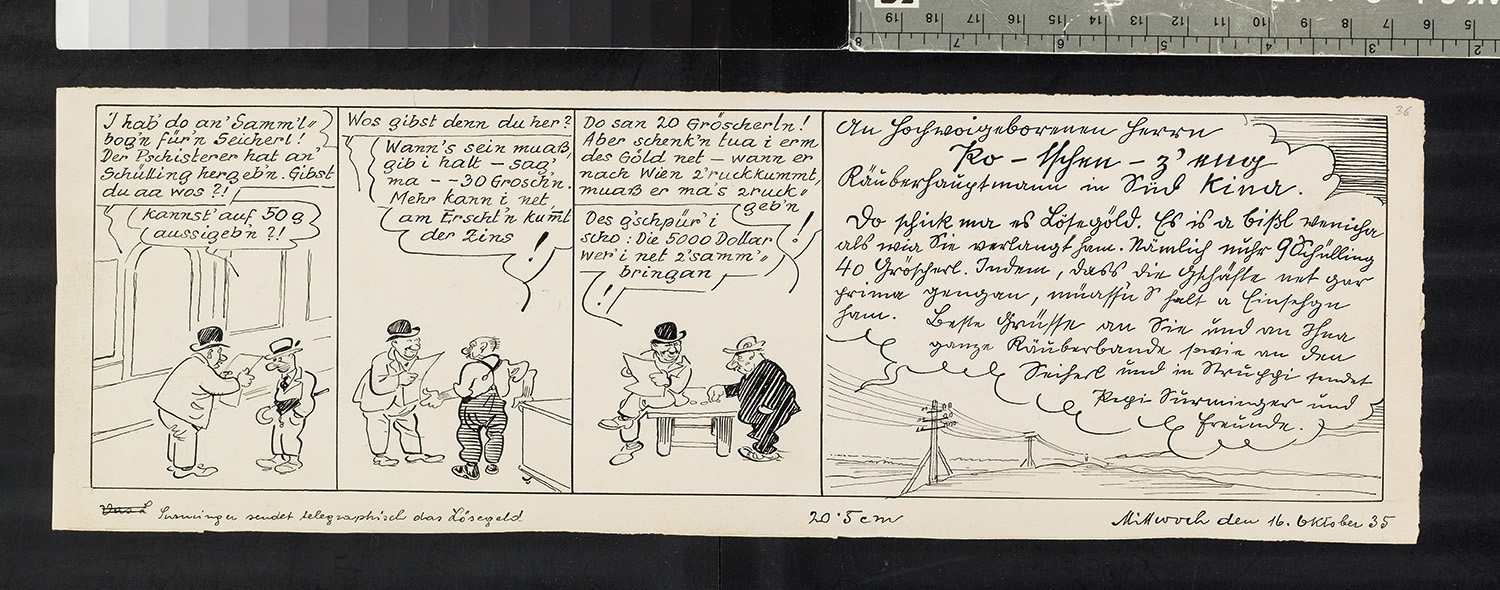 I hab' do an' Samm'l=
bog'n für'n Seicherl!
Der Pschisterer hat an'
Schülling hergeb'n. Gibst
du aa wos ?!
kannst' auf 50 g
aussigeb'n ?!
Wos gibst denn du her?
Wann's sein muaß,
gib i halt – sag'
ma - - 30 Grosch'n.
Mehr kann i net,
am Erscht'n kumt
der Zins
!
Do san 20 Gröscherln!
Aber schenk'n tua i erm
des Göld net – wann er
nach Wien z'ruckkummt,
muaß er ma's zruck=
geb'n
!
Des g'schpür' i
scho: Die 5000 Dollar
wer' i net z'samm'=
bringan
!
An Hochwoigeborenen Herrn
Ko - tschen - z'eng
Räuberhauptmann in Süd Kina.
Do schick ma es Lösegöld. Es is a bißl wenicha
als wia Sie verlangt ham. Nämlich nuhr 9 Schülling
40 Gröscherl. Indem, dass die Gschäfte net gar
prima gengan, müassn S' halt a Einsehgn
ham. Beste Grüsse an Sie und an Ihna
ganze Räuberbande sowie an den
Seicherl und in Struppi sendet
Pepi Surminger und
Freunde.
36
Surminger sendet telegraphisch das Lösegeld
20·5 cm
Mittwoch den 16. Oktober 35
19 18 17 16 15 14 13 12 11 10 9 8 7 6 5
8 7 6 5 4 3 2